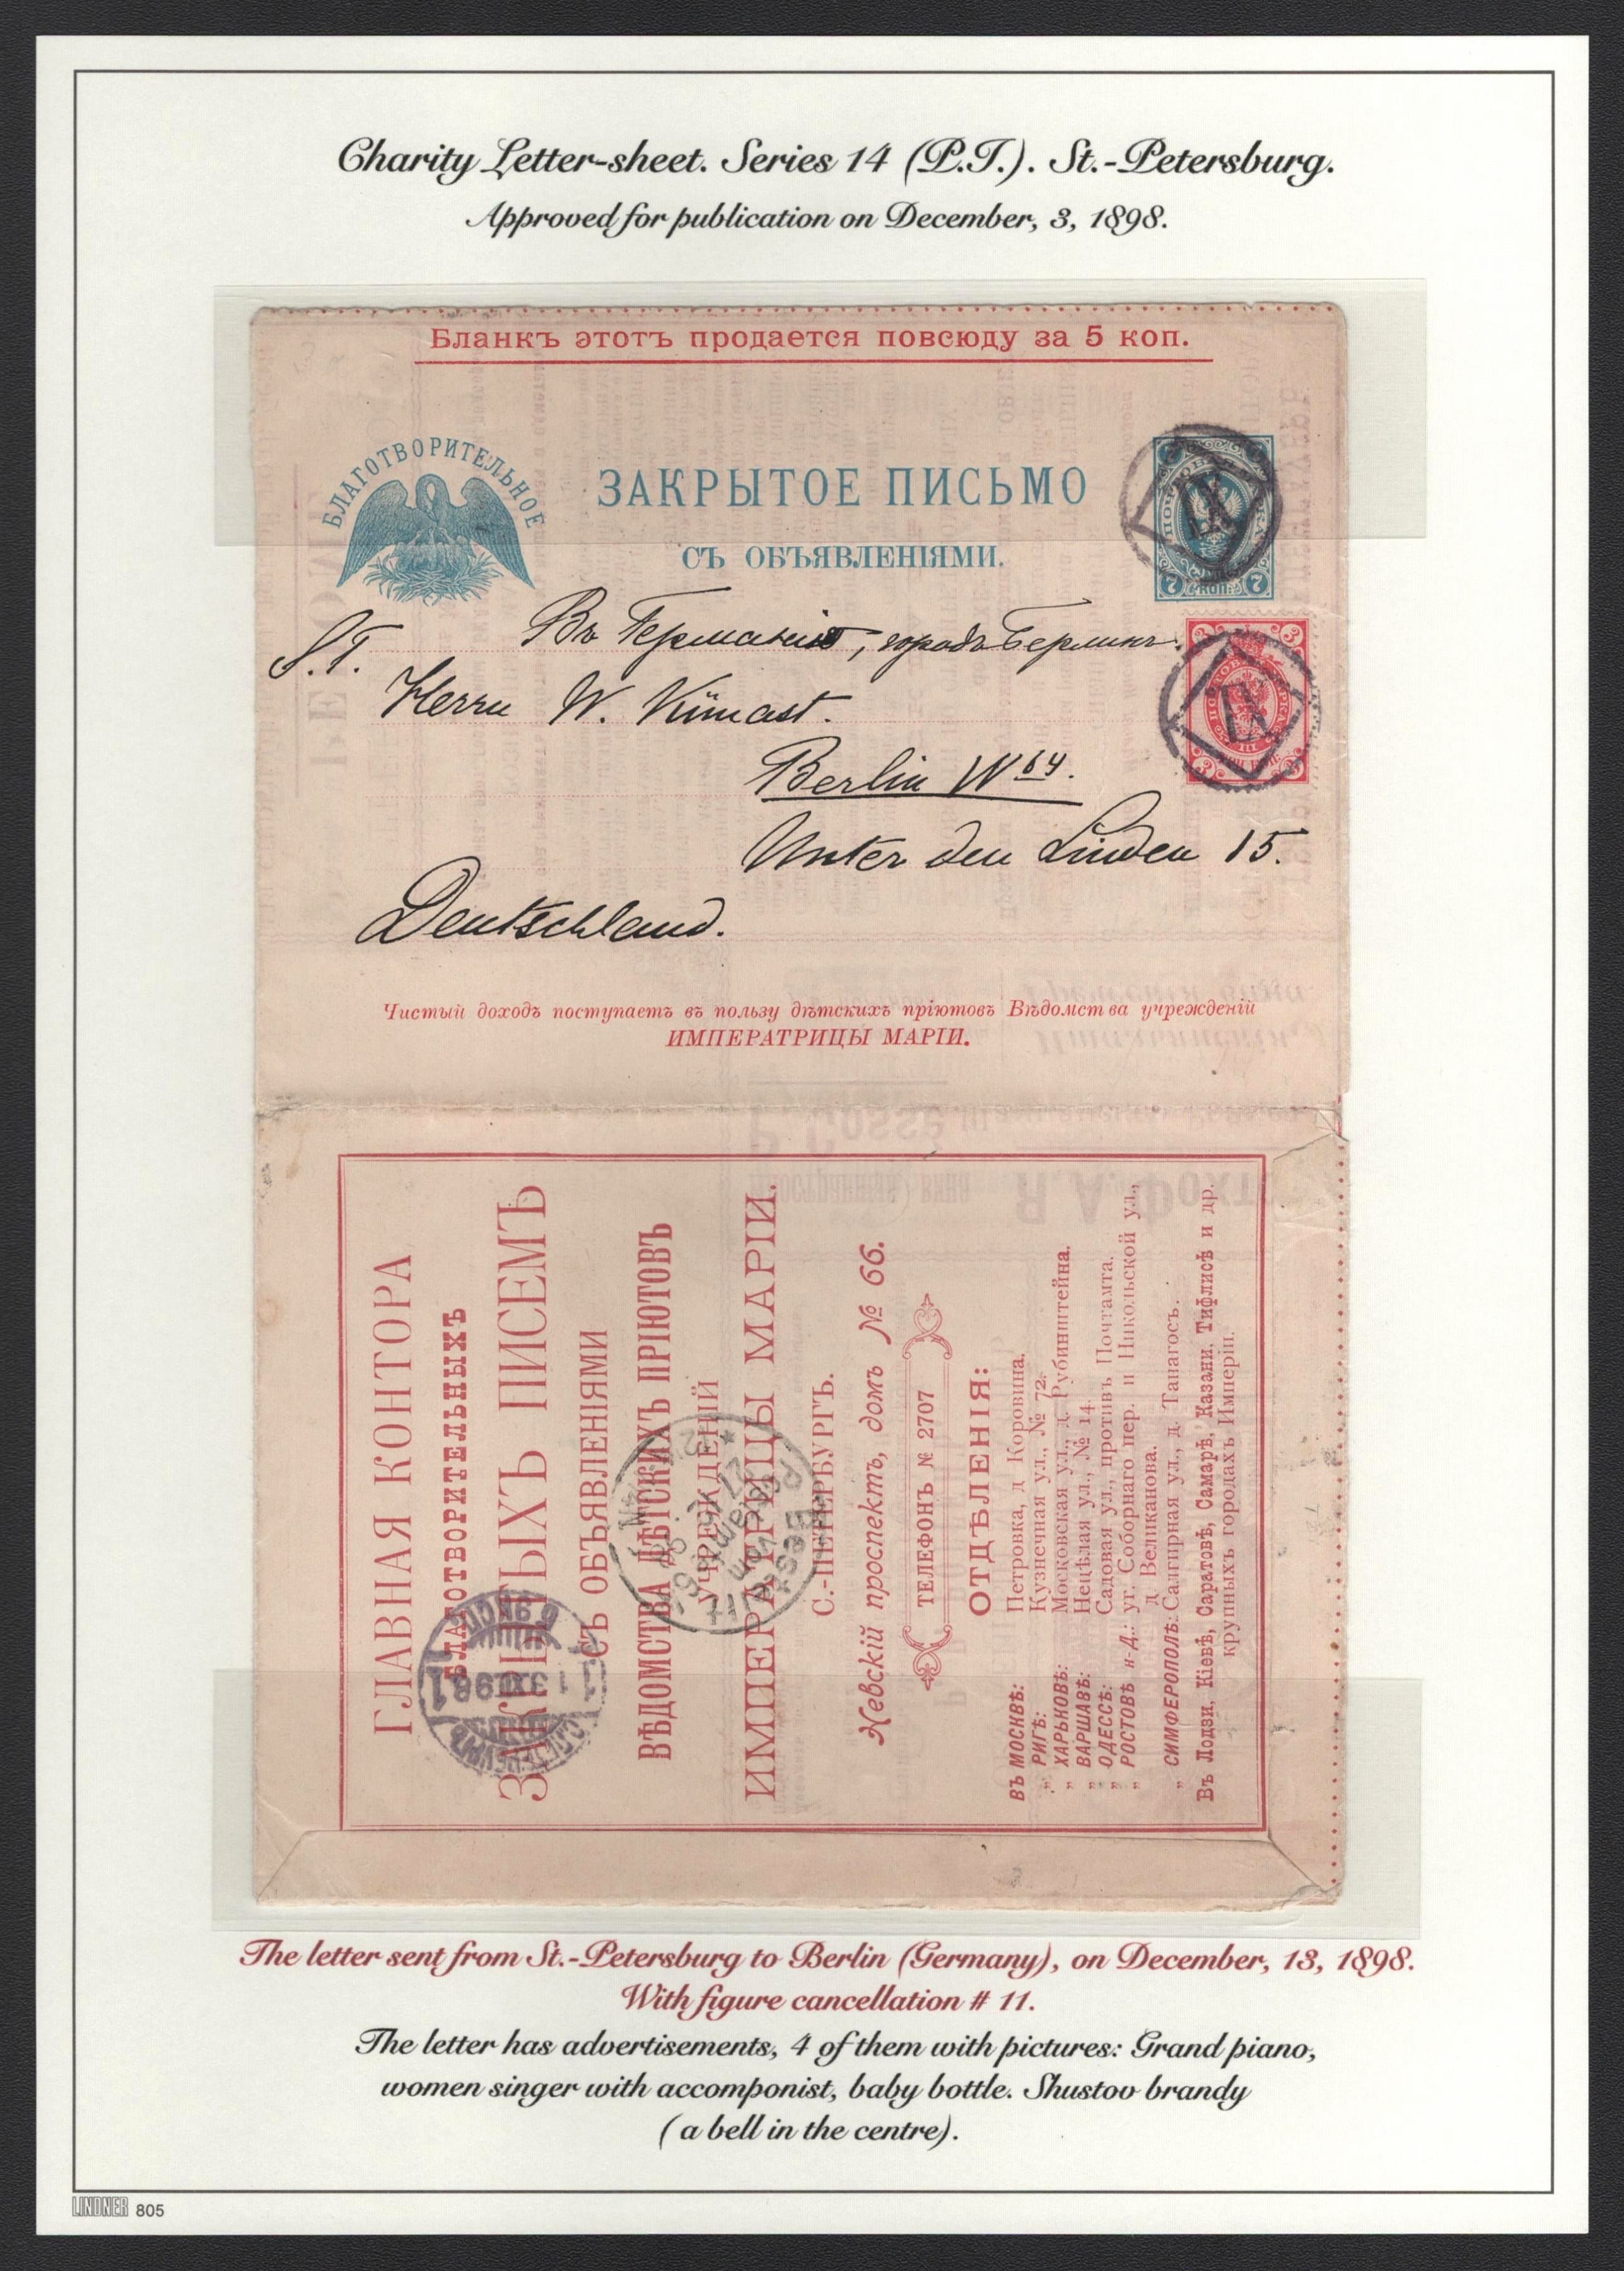 Charity Letter-sheet. Series 14 (P.T.). St.-Petersburg.
Approved for publication on December, 3, 1898.
Бланкъ этотъ продается повсюду за 5 коп.
БЛАГОТВОРИТЕЛЬНОЕ
ЗАКРЫТОЕ ПИСЬМО
СЪ ОБЪЯВЛЕНІЯМИ.
7 7
S.T.
Въ Германію, городъ Берлинъ.
Herrn W. Künast.
Berlin W 64.
Unter den Linden 15.
Deutschland.
Чистый доходъ поступаетъ въ пользу дѣтскихъ пріютовъ Вѣдомства учрежденій
ИМПЕРАТРИЦЫ МАРІИ.
ГЛАВНАЯ КОНТОРА
БЛАГОТВОРИТЕЛЬНЫХЪ
ЗАКРЫТЫХЪ ПИСЕМЪ
СЪ ОБЪЯВЛЕНІЯМИ
ВѢДОМСТВА ДѢТСКИХЪ ПРІЮТОВЪ
УЧРЕЖДЕНІЙ
ИМПЕРАТРИЦЫ МАРІИ.
С.-ПЕТЕРБУРГЪ.
Невскій проспектъ, домъ № 66.
ТЕЛЕФОНЪ № 2707
ОТДѢЛЕНІЯ:
ВЪ МОСКВѢ: Петровка, д Коровина.
„ РИГѢ: Кузнечная ул., № 72.
„ ХАРЬКОВѢ: Московская ул., д. Рубинштейна.
„ ВАРШАВѢ: Нецѣлая ул., № 14.
„ ОДЕССѢ: Садовая ул., противъ Почтамта.
„ РОСТОВѢ н-Д.: уг. Соборнаго пер. и Никольской ул.,
д Великанова.
„ СИМФЕРОПОЛѢ: Салгирная ул., д. Танагосъ.
Въ Лодзи, Кіевѣ, Саратовѣ, Самарѣ, Казани, Тифлисѣ и др.
крупныхъ городахъ Имперіи.
Bestellt
vom
Postamte 64
The letter sent from St.-Petersburg to Berlin (Germany), on December, 13, 1898.
With figure cancellation # 11.
The letter has advertisements, 4 of them with pictures: Grand piano,
women singer with accomponist, baby bottle. Shustov brandy
( a bell in the centre).
LINDNER 805